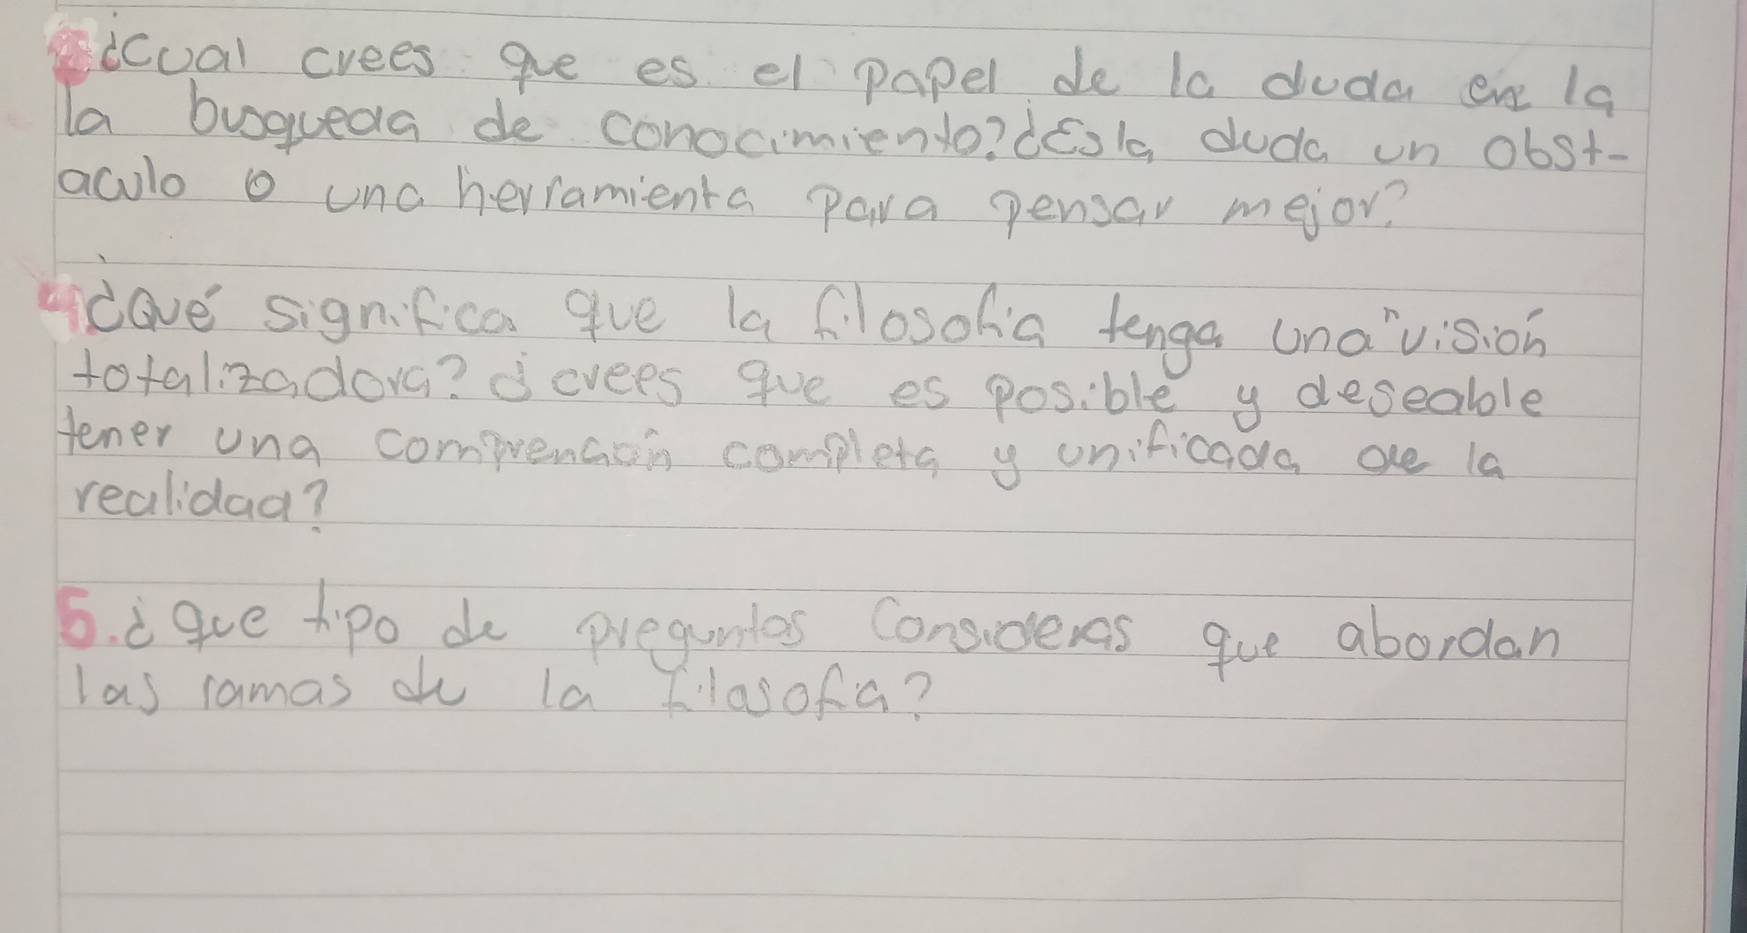 ¿Cual crees que es el papel de la duda en la
la busqueda de conocimiento? ¿Es la duda un obst-
aculo o una herramienta para pensar mejor?
4 ¿Qué significa que la filosofia tenga una "visión
totalizadora? ¿crees que es posible y deseable
tener una comprención completa y unificada de la
realidad?
5. ¿que tipo de preguntas Consideras que abordan
las ramas de la filasofia?